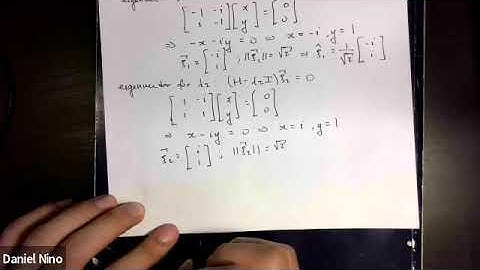 [-1 -i; i -1][x; y] = [0; 0]
⇒ -x - iy = 0 ⇒ x = -i, y = 1
ξ⃗₁ = [-i; 1], ||ξ⃗₁|| = √2 ⇒ ξ̂₁ = 1/√2 [-i; 1]
eigenvector for λ₂ (H - λ₂I)ξ⃗₂ = 0
[1 -i; i 1][x; y] = [0; 0]
⇒ x - iy = 0 ⇒ x = i, y = 1
ξ⃗₂ = [i; 1], ||ξ⃗₂|| = √2
Daniel Nino